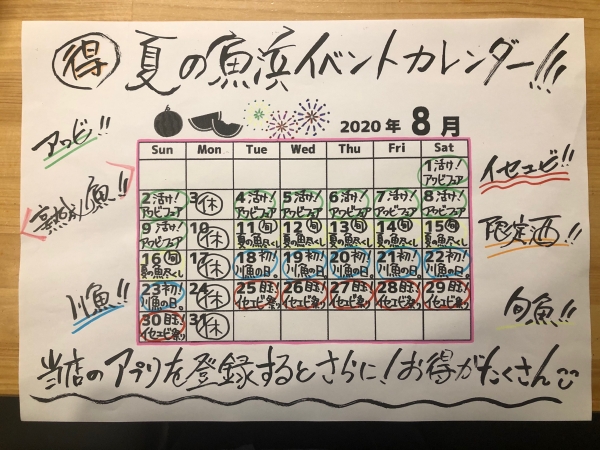 得 夏の魚浜イベントカレンダー!!!
2020年 8月
アワビ!!
熟成魚!!
川魚!!
イセエビ!!
限定酒!!
旬魚!!
Sun Mon Tue Wed Thu Fri Sat
1 活け! アワビフェア
2 活け! アワビフェア
3 休
4 活け! アワビフェア
5 活け! アワビフェア
6 活け! アワビフェア
7 活け! アワビフェア
8 活け! アワビフェア
9 活け! アワビフェア
10 休
11 旬 夏の魚尽くし
12 旬 夏の魚尽くし
13 旬 夏の魚尽くし
14 旬 夏の魚尽くし
15 旬 夏の魚尽くし
16 旬 夏の魚尽くし
17 休
18 初! 川魚の日。
19 初! 川魚の日。
20 初! 川魚の日。
21 初! 川魚の日。
22 初! 川魚の日。
23 初! 川魚の日。
24 休
25 イセエビ祭り
26 イセエビ祭り
27 イセエビ祭り
28 イセエビ祭り
29 イセエビ祭り
30 イセエビ祭り
31 休
当店のアプリを登録するとさらに!お得がたくさん